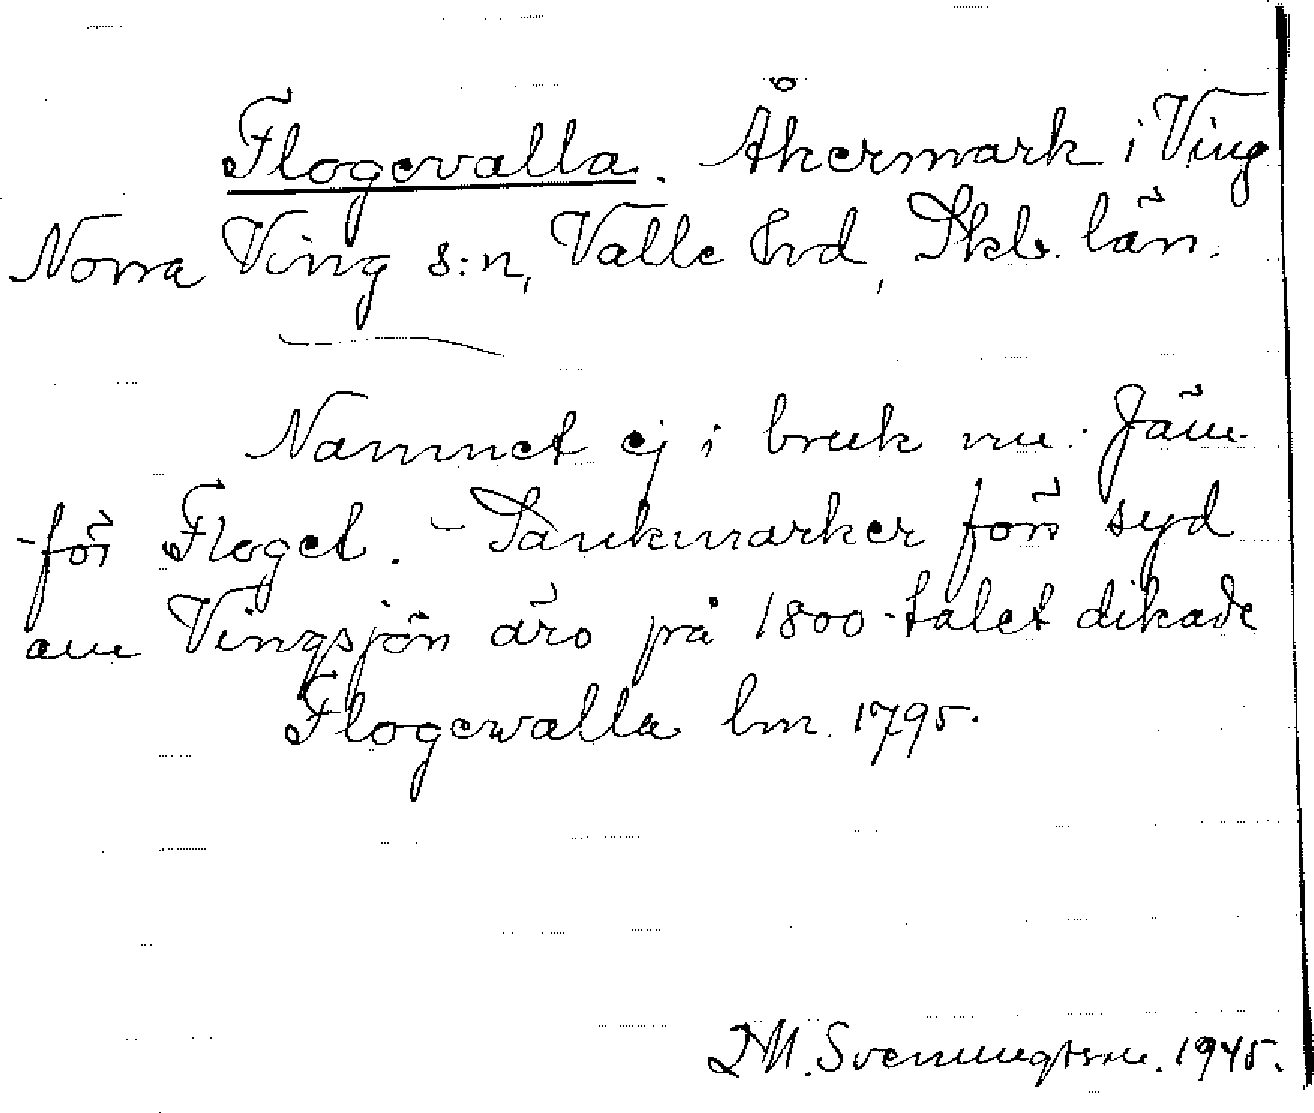 Flogevalla. Åkermark i Ving
Norra Ving s:n, Valle hrd, Skb. län.
Namnet ej i bruk nu. Jäm-
-för Floget. - Sankmarker för syd
om Vingsjön äro på 1800-talet dikade
Flogewalla lm. 1795.
Svenungsson. 1945.